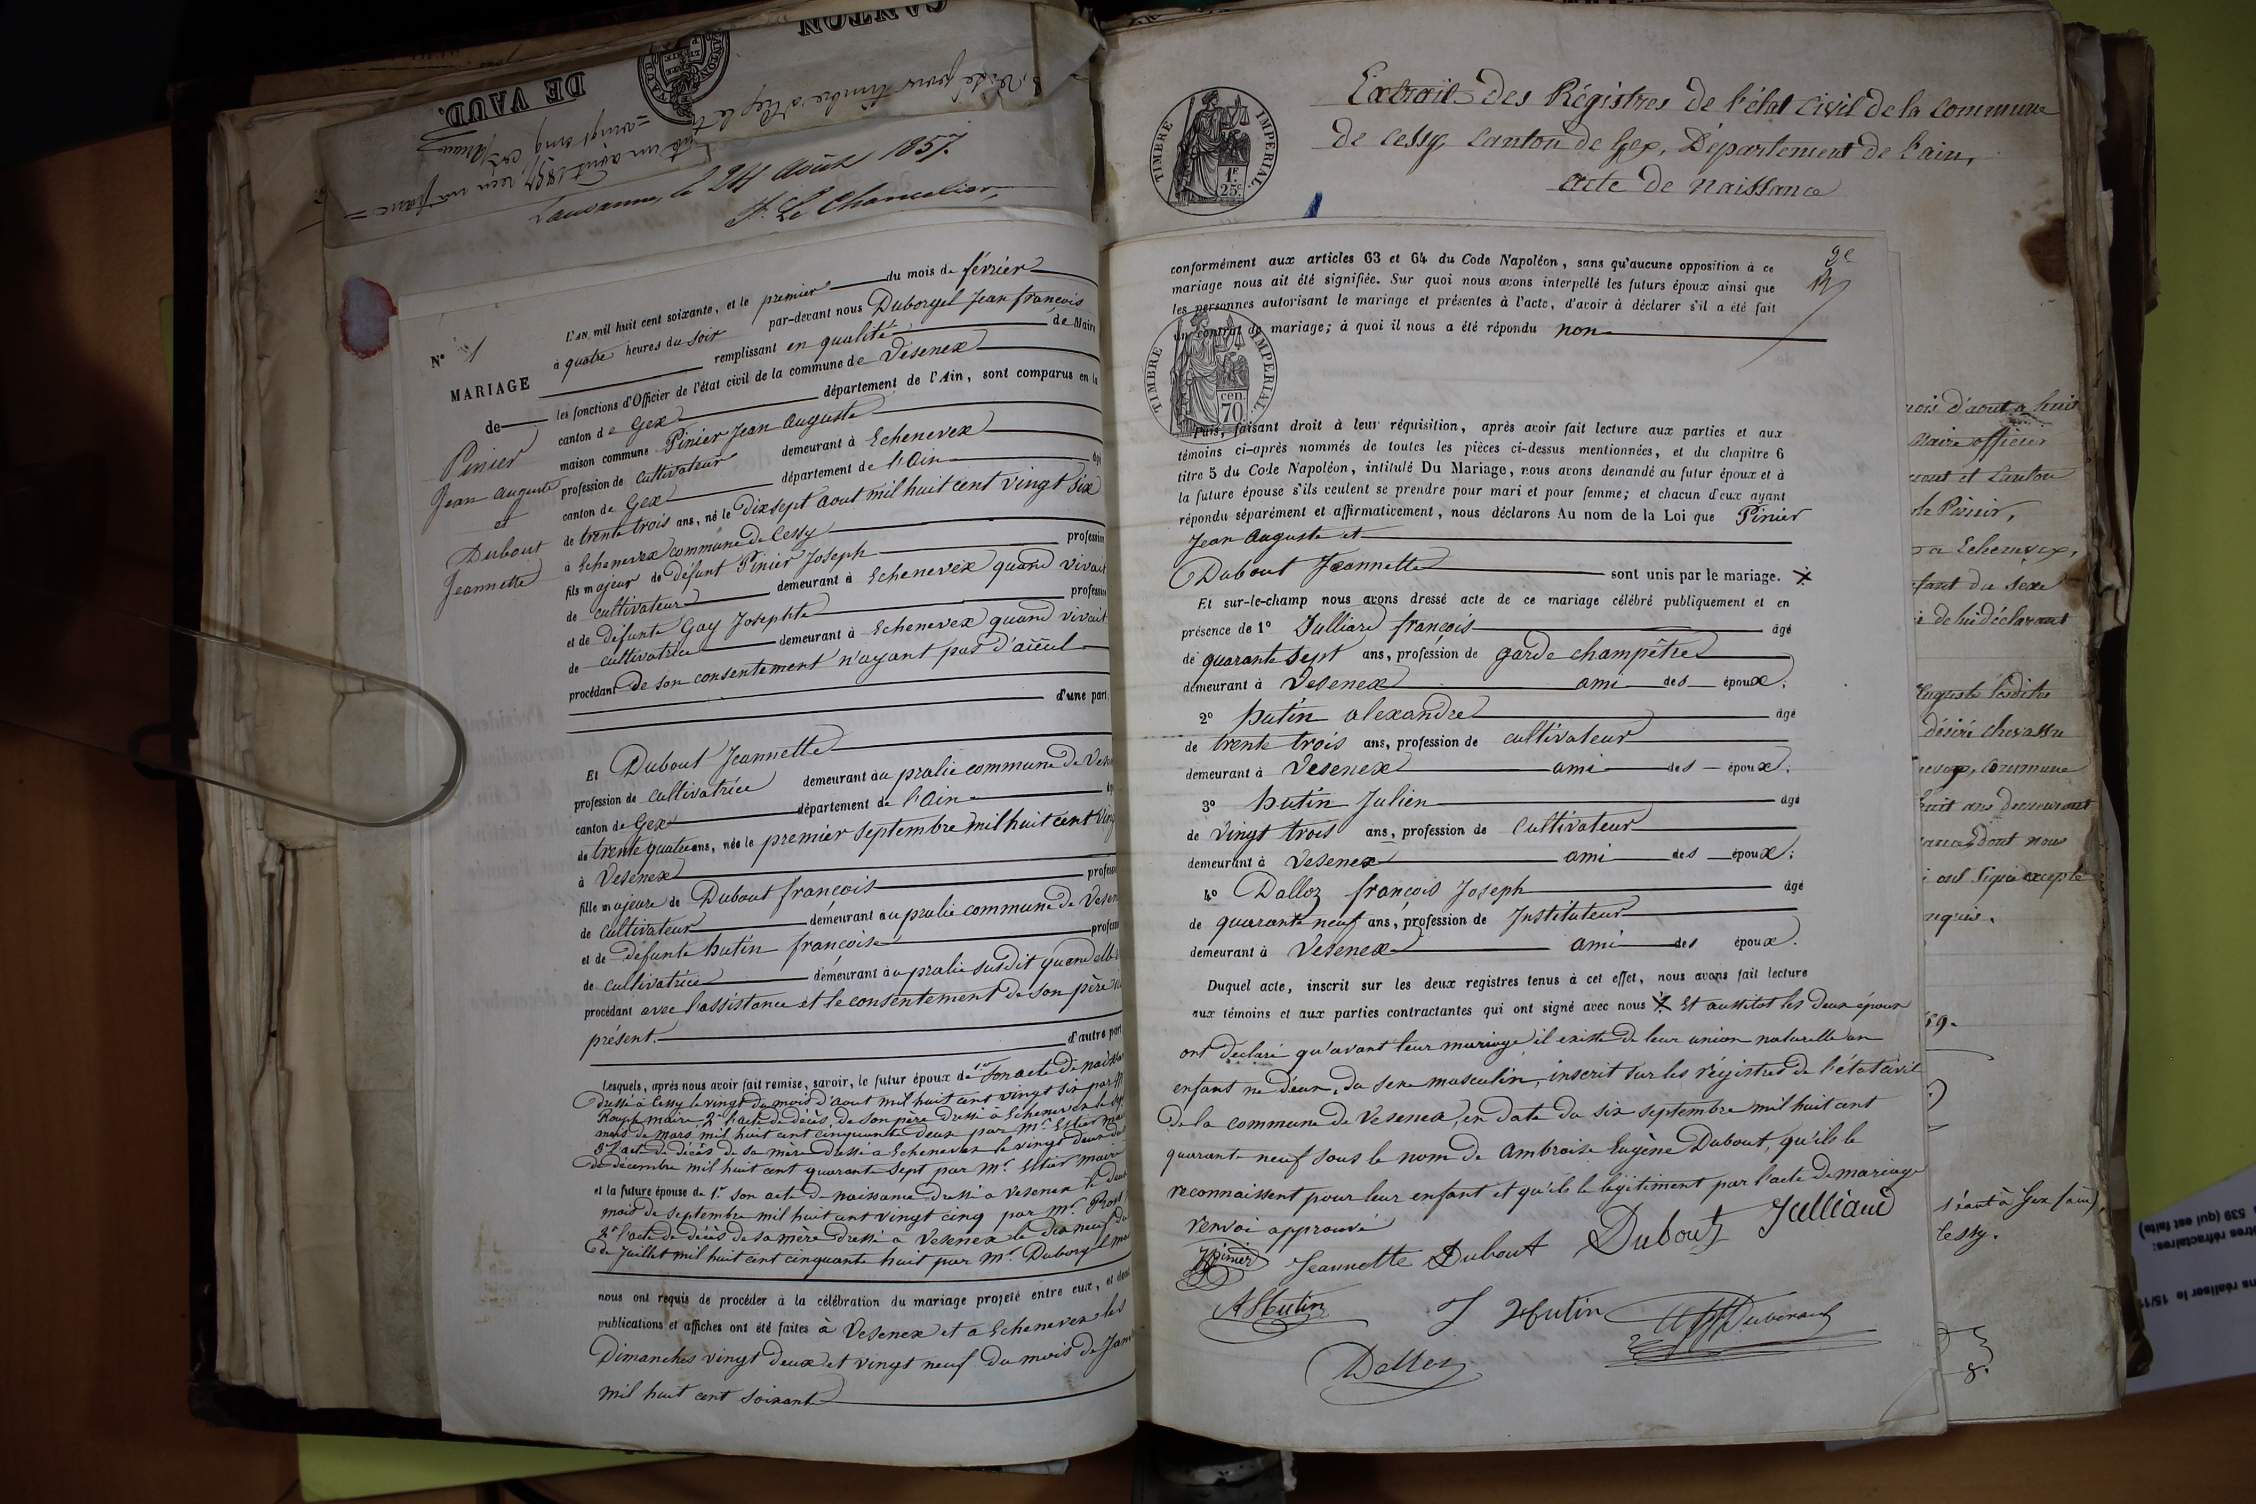 CANTON
DE VAUD.
Lausanne, le 24 Août 1857.
Le Chancelier,
N° 1
MARIAGE
de
Pinier
Jean Auguste
et
Dubout
Jeannette
L'AN mil huit cent soixante, et le premier du mois de février
à quatre heures du soir par-devant nous Duborgel Jean françois
remplissant en qualité de Maire
les fonctions d'Officier de l'état civil de la commune de Vesenex
canton de Gex département de l'Ain, sont comparus en la
maison commune Pinier Jean Auguste
profession de cultivateur demeurant à Echenevex
canton de Gex département de l'Ain âgé
de trente trois ans, né le dixsept aout mil huit cent vingt six
à Echenevex commune de Cessy
fils majeur de défunt Pinier Joseph profession
de cultivateur demeurant à Echenevex quand vivait
et de défunte Gay Josephte profession
de cultivatrice demeurant à Echenevex quand vivait
procédant de son consentement n'ayant pas d'aïeul
d'une part.
Et Dubout Jeannette
profession de cultivatrice demeurant au pralie commune de
canton de Gex département de l'Ain
de trente quatre ans, née le premier septembre mil huit cent
à Vesenex
fille majeure de Dubout françois
de cultivateur demeurant au pralie commune de
et de défunte hutin françoise
de cultivatrice demeurant au pralie susdit quand elle
procédant avec l'assistance et le consentement de son père
présent. d'autre part
Lesquels, après nous avoir fait remise, savoir, le futur époux de 1er son acte de
dressé à Cessy le vingt du mois d'aout mil huit cent vingt six par
maire 2° l'acte de décès de son père dressé à Echenevex le
mois de mars mil huit cent cinquante deux par Mr.
3° l'acte de décès de sa mère dressé à Echenevex le vingt deux
de décembre mil huit cent quarante sept par Mr. maire
et la future épouse de 1er son acte de naissance dressé à Vesenex le
mois de septembre mil huit cent vingt cinq par Mr.
2° l'acte de décès de sa mère dressé à Vesenex le dix neuf du
de Juillet mil huit cent cinquante huit par Mr. Duborgel
nous ont requis de procéder à la célébration du mariage projeté entre eux, et dont
publications et affiches ont été faites à Vesenex et à Echenevex les
Dimanches vingt deux et vingt neuf du mois de
mil huit cent soixante
Extrait des Régistres de l'état civil de la commune
de Cessy, Canton de Gex, Département de l'ain,
acte de naissance
TIMBRE IMPÉRIAL.
1F. 25c.
conformément aux articles 63 et 64 du Code Napoléon, sans qu'aucune opposition à ce
mariage nous ait été signifiée. Sur quoi nous avons interpellé les futurs époux ainsi que
les personnes autorisant le mariage et présentes à l'acte, d'avoir à déclarer s'il a été fait
un contrat de mariage; à quoi il nous a été répondu non
TIMBRE IMPÉRIAL.
cen. 70
Puis, faisant droit à leur réquisition, après avoir fait lecture aux parties et aux
témoins ci-après nommés de toutes les pièces ci-dessus mentionnées, et du chapitre 6
titre 5 du Code Napoléon, intitulé Du Mariage, nous avons demandé au futur époux et à
la future épouse s'ils veulent se prendre pour mari et pour femme; et chacun d'eux ayant
répondu séparément et affirmativement, nous déclarons Au nom de la Loi que Pinier
Jean Auguste et
Dubout Jeannette sont unis par le mariage.
Et sur-le-champ nous avons dressé acte de ce mariage célébré publiquement et en
présence de 1° Julliard françois âgé
de quarante sept ans, profession de garde champêtre
demeurant à Vesenex ami des époux;
2° hutin alexandre âgé
de trente trois ans, profession de cultivateur
demeurant à Vesenex ami des époux;
3° hutin Julien âgé
de vingt trois ans, profession de cultivateur
demeurant à Vesenex ami des époux;
4° Dalloz françois Joseph âgé
de quarante neuf ans, profession de Instituteur
demeurant à Vesenex ami des époux.
Duquel acte, inscrit sur les deux registres tenus à cet effet, nous avons fait lecture
aux témoins et aux parties contractantes qui ont signé avec nous Et aussitot les deux époux
ont déclaré qu'avant leur mariage il existe de leur union naturelle un
enfant né d'eux, du sexe masculin, inscrit sur les régistres de l'état civil
de la commune de Vesenex, en date du six septembre mil huit cent
quarante neuf sous le nom de Ambroise Eugène Dubout, qu'ils le
reconnaissent pour leur enfant et qu'ils le légitiment par l'acte de mariage
renvoi approuvé
Pinier Jeannette Dubout Dubout Julliard
A Hutin J Hutin
Dalloz
mois d'aout a huit
maire officier
Echenevex,
enfant du sexe
désiré chevassu
commune
ans demeurant
dont nous
ont signé excepté
Cessy.